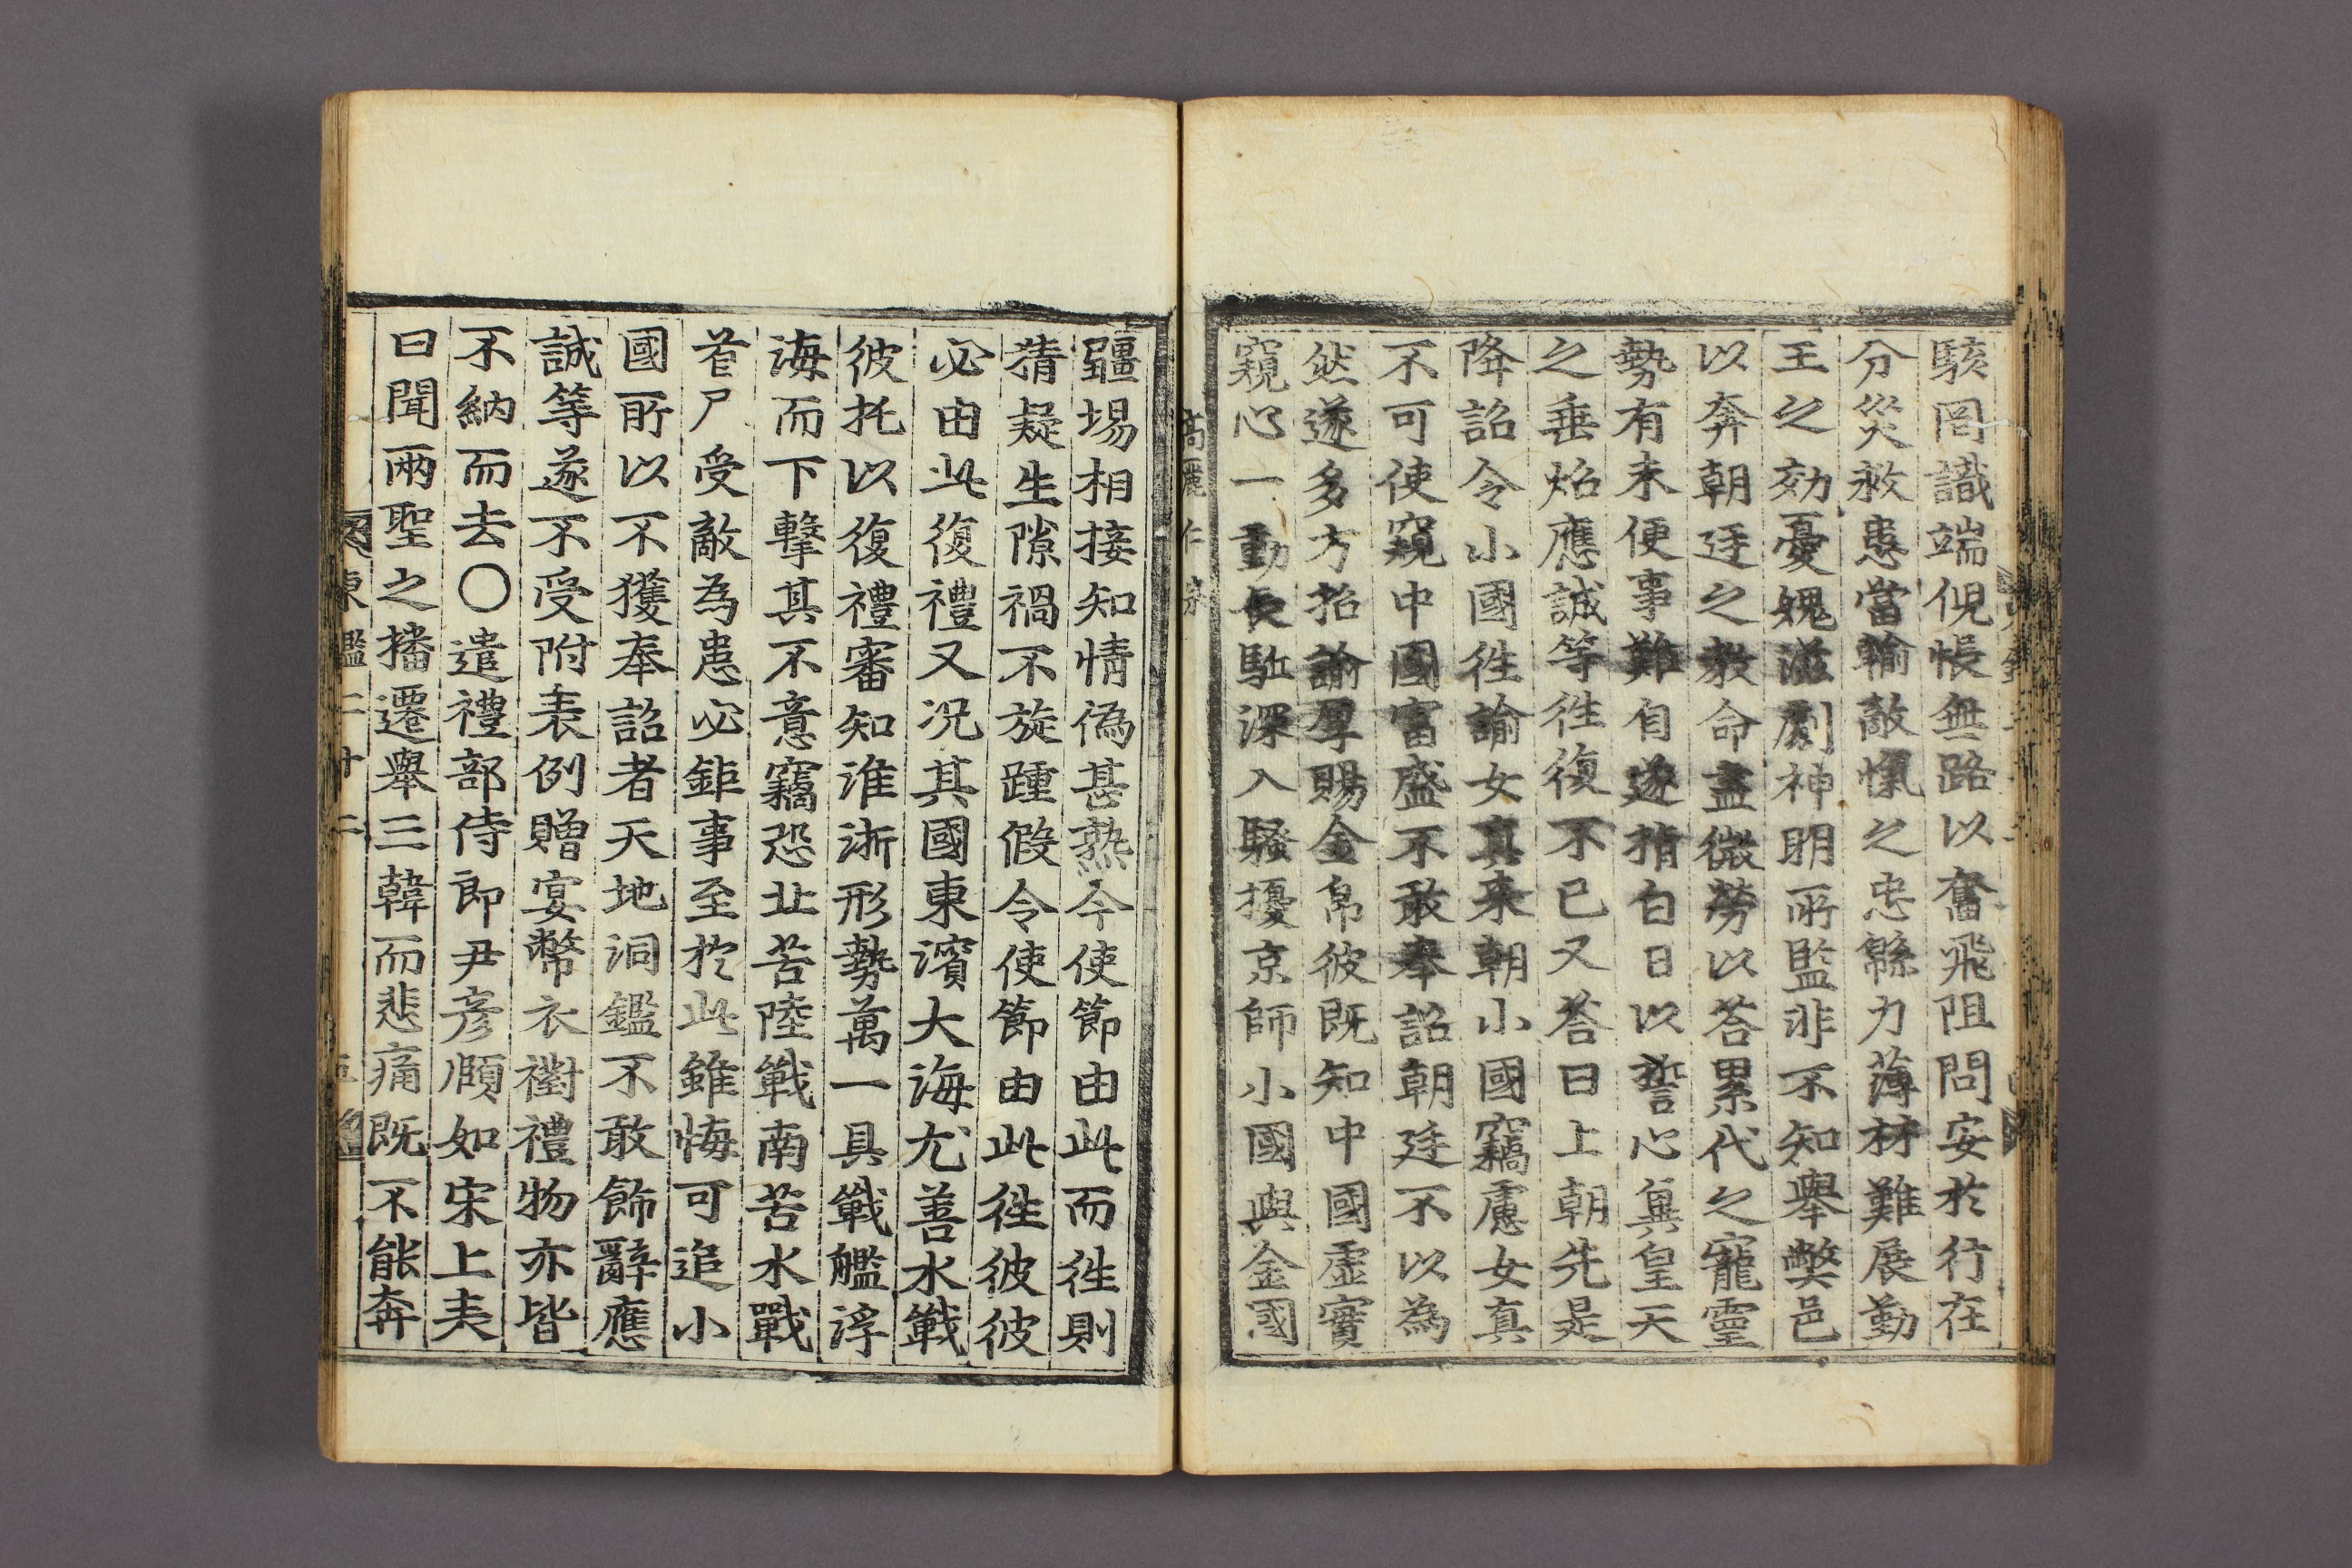 駭罔識端倪悵無路以奮飛阻問安於行在
分災救患當輸敵愾之忠緜力薄材難展勤
王之効憂媿滋劇神明所監非不知舉弊邑
以奔朝廷之教命盡微勞以荅累代之寵靈
勢有未便事難自遂指白日以誓心冀皇天
之垂炤應誠等徃復不已又荅曰上朝先是
降詔令小國徃諭女真来朝小國竊慮女真
不可使窺中國富盛不敢奉詔朝廷不以為
然遂多方招諭厚賜金帛彼既知中國虛實
窺心一動長駈深入騷擾京師小國與金國
高麗仁宗
疆場相接知情偽甚熟今使節由此而徃則
猜疑生隙禍不旋踵假令使節由此徃彼彼
必由此復禮又况其國東濱大海尤善水戰
彼托以復禮審知淮浙形勢萬一具戰艦浮
海而下擊其不意竊恐北苦陸戰南苦水戰
首尸受敵為患必鉅事至於此雖悔可追小
國所以不獲奉詔者天地洞鑑不敢飾辭應
誠等遂不受附表例贈宴幣衣襨禮物亦皆
不納而去〇遣禮部侍郎尹彦頤如宋上表
曰聞兩聖之播遷舉三韓而悲痛既不能奔
東鑑二十二